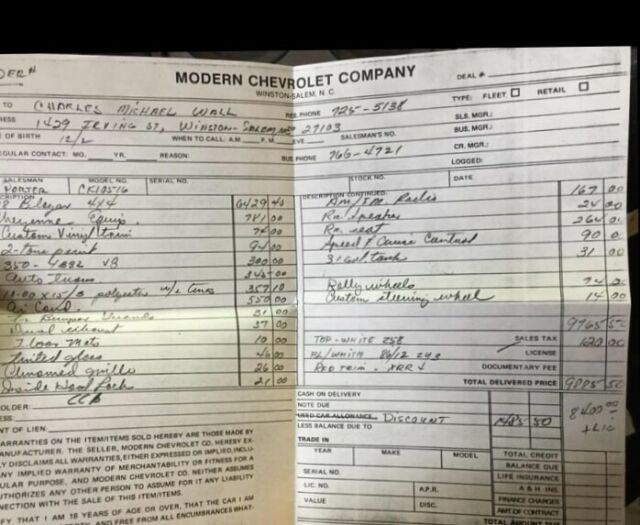 DER #
MODERN CHEVROLET COMPANY
WINSTON-SALEM, N. C.
DEAL #
TO CHARLES MICHAEL WALL
RES. PHONE 725-5138
TYPE: FLEET RETAIL
RESS 1429 IRVING ST, WINSTON-SALEM 27103
SLS. MGR.:
E OF BIRTH 12/2 WHEN TO CALL: A.M. P.M. EVE. SALESMAN'S NO.
BUS. MGR.:
GULAR CONTACT: MO. YR. REASON:
BUS. PHONE 766-4721
CR. MGR.:
LOGGED:
SALESMAN MODEL NO. SERIAL NO.
PORTER CK10516
STOCK NO. DATE
CRIPTION
Blazer 4x4 6429 40
Cheyenne Equip. 781 00
Custom Vinyl trim 74 00
2-tone paint
350-4BBL V8 300.00
Auto trans 345 00
550 00
31 00
Dual exhaust 37 00
Floor mats 10 00
Tinted glass 40 00
Chromed grille 26 00
Inside Hood Lock 21 00
DESCRIPTION CONTINUED:
Am/Fm Radio 167 00
Rr. speaker 24 00
Rr. seat 264 00
Speed & Cruise Control 90 00
31 Gal tank 31 00
Rally wheels
Custom steering wheel 14 00
9765 50
TOP-WHITE
SALES TAX 120 00
LICENSE
DOCUMENTARY FEE
TOTAL DELIVERED PRICE 9885 50
HOLDER:
ESS:
NT OF LIEN:
CASH ON DELIVERY
NOTE DUE
USED CAR ALLOWANCE DISCOUNT 1485 50
LESS BALANCE DUE TO
8400.00
+ LIC
TRADE IN
YEAR MAKE MODEL
SERIAL NO.
LIC. NO. A.P.R.
VALUE DISC.
TOTAL CREDIT
BALANCE DUE
LIFE INSURANCE
A & H INS.
FINANCE CHARGES
AMT. OF CONTRACT
TOTAL AMOUNT DUE
ARRANTIES ON THE ITEM/ITEMS SOLD HEREBY ARE THOSE MADE BY
MANUFACTURER. THE SELLER, MODERN CHEVROLET CO. HEREBY EX-
LY DISCLAIMS ALL WARRANTIES, EITHER EXPRESSED OR IMPLIED, INCLU-
ANY IMPLIED WARRANTY OF MERCHANTABILITY OR FITNESS FOR A
ULAR PURPOSE, AND MODERN CHEVROLET CO. NEITHER ASSUMES
UTHORIZES ANY OTHER PERSON TO ASSUME FOR IT ANY LIABILITY
NNECTION WITH THE SALE OF THIS ITEM/ITEMS.
FY THAT I AM 18 YEARS OF AGE OR OVER, THAT THE CAR I AM
AND FREE FROM ALL ENCUMBRANCES WHAT-